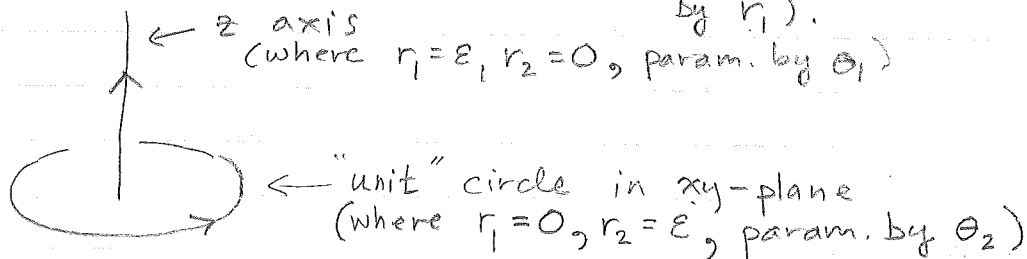 by r₁).
← z axis
(where r₁ = ε, r₂ = 0, param. by θ₁)
← "unit" circle in xy-plane
(where r₁ = 0, r₂ = ε, param. by θ₂)